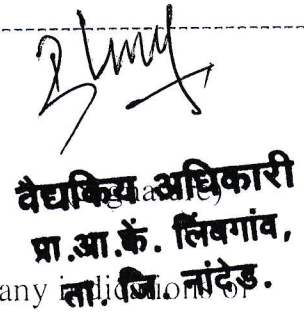 वैद्यकिय अधिकारी
प्रा.आ.कें. लिंबगांव,
ता. जि. नांदेड.
any indications or